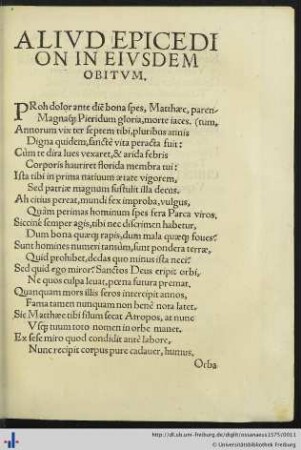 ALIVD EPICEDI
ON IN EIVSDEM
OBITVM.
PRoh dolor ante diē bona spes, Matthæe, paren-
Magnaq; Pieridum gloria, morte iaces. (tum,
Annorum vix ter septem tibi, pluribus annis
Digna quidem, sanctè vita peracta fuit:
Cùm te dira lues vexaret, & arida febris
Corporis hauriret florida membra tui:
Ista tibi in prima natiuum ætate vigorem,
Sed patriæ magnum sustulit illa decus.
Ah citius pereat, mundi fex improba, vulgus,
Quàm perimas hominum spes fera Parca viros.
Siccinè semper agis, tibi nec discrimen habetur,
Dum bona quæq; rapis, dum mala quæq; foues?
Sunt homines numeri tantùm, sunt pondera terræ,
Quid prohibet, dedas quo minus ista neci?
Sed quid ego miror? Sanctos Deus eripit orbi,
Ne quos culpa leuat, pœna futura premat.
Quanquam mors illis seros intercipit annos,
Fama tamen nunquam non benè nota latet.
Sic Matthæe tibi filum secat Atropos, at nunc
Vsq; tuum toto nomen in orbe manet.
Ex sese miro quod condidit antè labore,
Nunc recipit corpus pure cadauer, humus.
Orba
http://dl.ub.uni-freiburg.de/diglit/nosanaeus1575/0011
© Universitätsbibliothek Freiburg